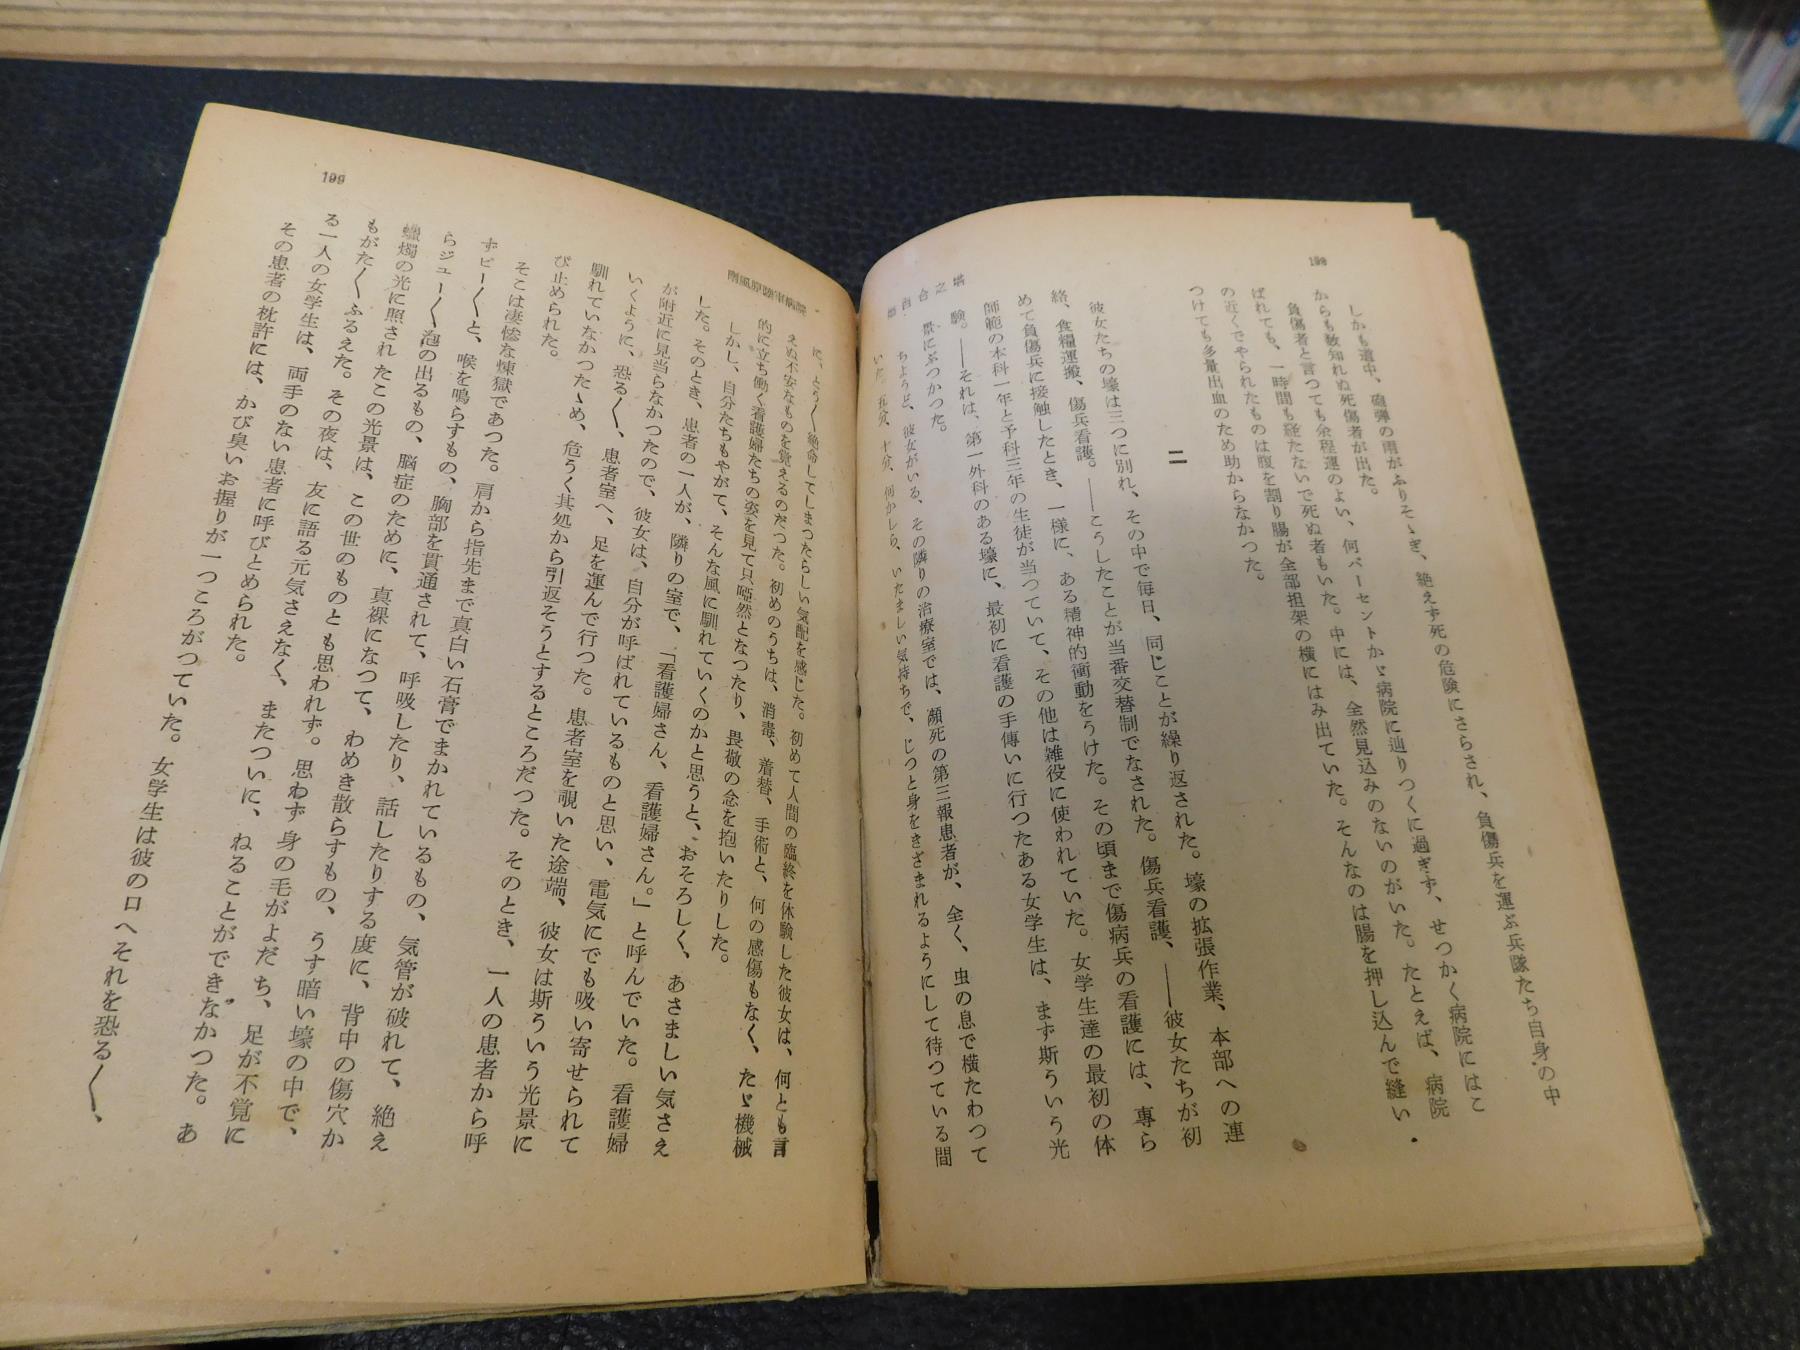 198
しかも道中、砲弾の雨がふりそゝぎ、絶えず死の危険にさらされ、負傷兵を運ぶ兵隊たち自身の中
からも数知れぬ死傷者が出た。
負傷者と言つても余程運のよい、何パーセントかゞ病院に辿りつくに過ぎず、せつかく病院にはこ
ばれても、一時間も経たないで死ぬ者もいた。中には、全然見込みのないのがいた。たとえば、病院
の近くでやられたものは腹を割り腸が全部担架の横にはみ出ていた。そんなのは腸を押し込んで縫い
つけても多量出血のため助からなかつた。
二
彼女たちの壕は三つに別れ、その中で毎日、同じことが繰り返された。壕の拡張作業、本部への連
絡、食糧運搬、傷兵看護。――こうしたことが当番交替制でなされた。傷兵看護、――彼女たちが初
めて負傷兵に接触したとき、一様に、ある精神的衝動をうけた。その頃まで傷病兵の看護には、専ら
師範の本科一年と予科三年の生徒が当つていて、その他は雑役に使われていた。女学生達の最初の体
験。――それは、第一外科のある壕に、最初に看護の手傳いに行つたある女学生は、まず斯ういう光
景にぶつかつた。
ちようど、彼女がいる、その隣りの治療室では、瀕死の第三報患者が、全く、虫の息で横たわつて
いた。五分、十分、何かしら、いたましい気持ちで、じつと身をきざまれるようにして待つている間
199
に、とう〱絶命してしまつたらしい気配を感じた。初めて人間の臨終を体験した彼女は、何とも言
えぬ不安なものを覚えるのだつた。初めのうちは、消毒、着替、手術と、何の感傷もなく、たゞ機械
的に立ち働く看護婦たちの姿を見て只啞然となつたり、畏敬の念を抱いたりした。
しかし、自分たちもやがて、そんな風に馴れていくのかと思うと、おそろしく、あさましい気さえ
した。そのとき、患者の一人が、隣りの室で、「看護婦さん、看護婦さん。」と呼んでいた。看護婦
が附近に見当らなかつたので、彼女は、自分が呼ばれているものと思い、電気にでも吸い寄せられて
いくように、恐る〱、患者室へ、足を運んで行つた。患者室を覗いた途端、彼女は斯ういう光景に
馴れていなかつたゝめ、危うく其処から引返そうとするところだつた。そのとき、一人の患者から呼
び止められた。
そこは凄惨な煉獄であつた。肩から指先まで真白い石膏でまかれているもの、気管が破れて、絶え
ずピー〱と、喉を鳴らすもの、胸部を貫通されて、呼吸したり、話したりする度に、背中の傷穴か
らジュー〱泡の出るもの、脳症のために、真裸になつて、わめき散らすもの、うす暗い壕の中で、
蠟燭の光に照されたこの光景は、この世のものとも思われず。思わず身の毛がよだち、足が不覚に
もがた〱ふるえた。その夜は、友に語る元気さえなく、またついに、ねることができなかつた。あ
る一人の女学生は、両手のない患者に呼びとめられた。
その患者の枕許には、かび臭いお握りが一つころがつていた。女学生は彼の口へそれを恐る〱、